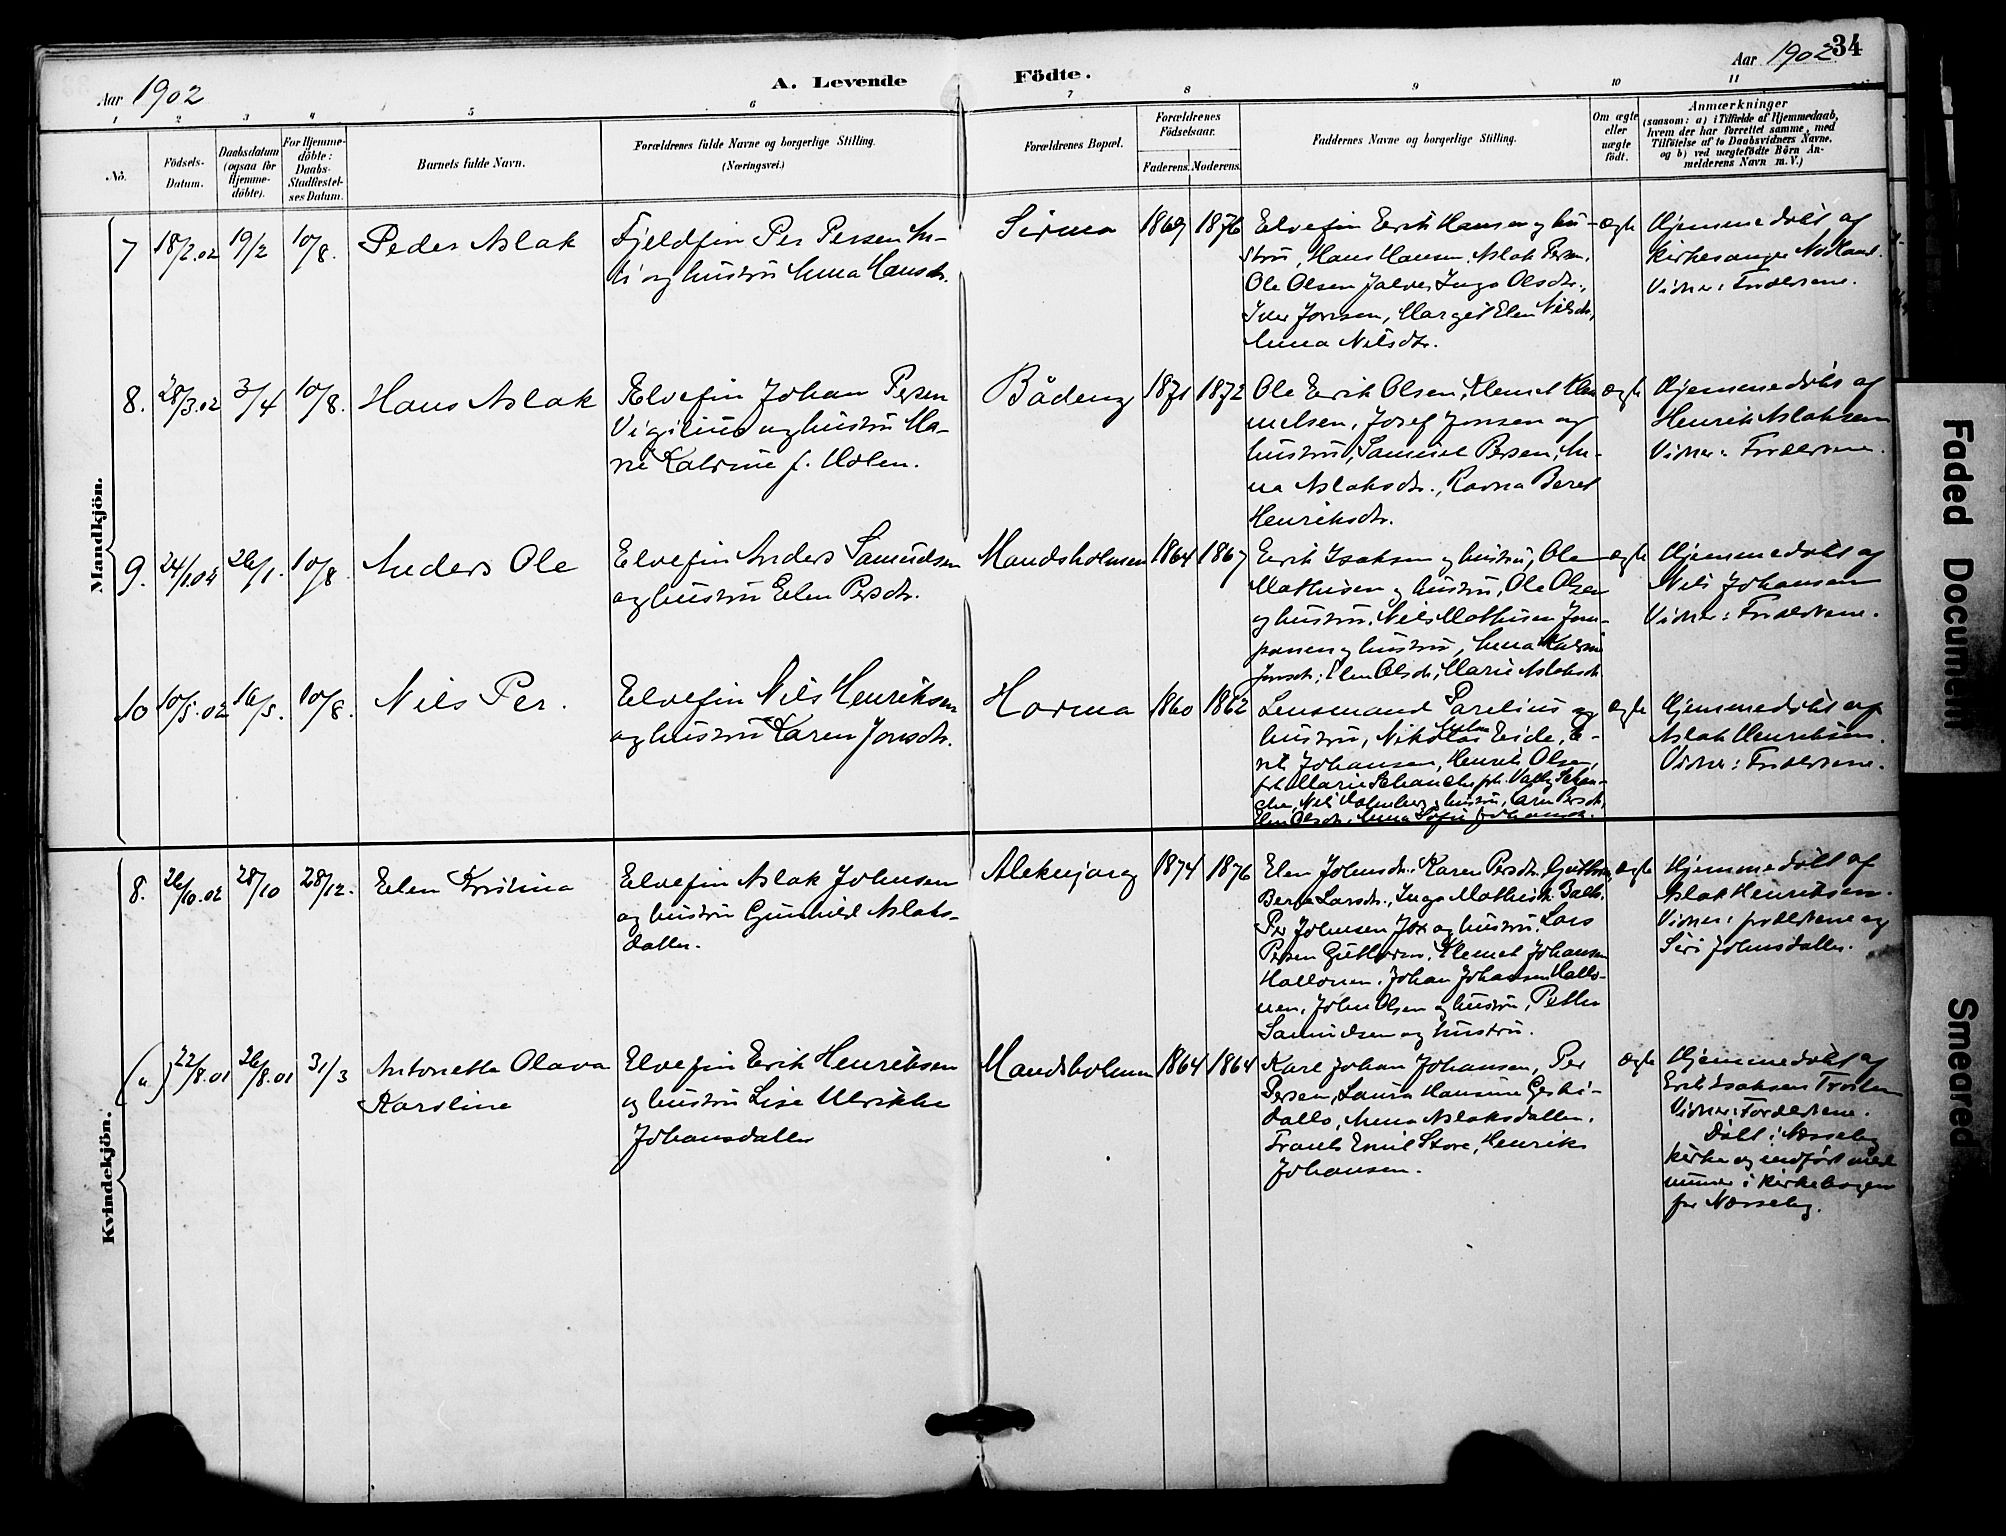 34
Aar 1902
A. Levende Födte.
Aar 1902
1 2 3 4 5 6 7 8 9 10 11
No.
Födsels-
Datum.
Daabsdatum
(ogsaa for
Hjemme-
döbte).
For Hjemme-
döbte:
Daabs-
Stadfæstel-
ses Datum.
Barnets fulde Navn.
Forældrenes fulde Navne og borgerlige Stilling.
(Næringsvei.)
Forældrenes Bopæl.
Forældrenes
Födselsaar.
Faderens. Moderens.
Faddernes Navne og borgerlige Stilling.
Om ægte
eller
uægte
födt.
Anmærkninger
(saasom: a) i Tilfælde af Hjemmedaab,
hvem der har forrettet samme, med
Tilföielse af to Daabsvidners Navne.
og b) ved uægtefödte Börn An-
melderens Navn m. V.)
Mandkjön.
7 18/2.02 19/2 10/8. Peder Aslak
Fjeldfin Per Persen
og hustru Anna Hansdr.
Sirma 1869 1876
Elvefin Erik Hansen og hu-
stru, Hans Hansen, Aslak Persen,
Ole Olsen Inga Olsdtr.,
Iver Jonsen, Marget Elen Nilsdr,
Anna Nilsdtr.
ægte
Hjemmedöbt af
kirkesanger
Vidner: Forældrene.
8. 28/3.02 3/4 10/8. Hans Aslak
Elvefin Johan Persen
Vigilius og hustru Ma-
rie Katrine f. Holm.
Bådeng 1871 1872
Ole Erik Olsen, Klemet Kle-
metsen, Josef Jonsen og
hustru, Samuel Persen, An-
na Aslaksdtr., Ravna Beret
Henriksdtr.
ægte
Hjemmedöbt af
Henrik Aslaksen
Vidner: Forældrene.
9. 24/1.02 26/1. 10/8. Anders Ole
Elvefin Anders Samuelsen
og hustru Elen Persdtr.
Mandsholmen 1864 1867
Erik Isaksen og hustru, Ole
Mathisen og hustru, Ole Olsen
og hustru, Nils Mathisen
og hustru, Anna
Jonsdr., Elen Olsdr., Marie Aslaksdr.
ægte
Hjemmedöbt af
Nils Johansen
Vidner: Forældrene.
10 10/5.02 16/5. 10/8. Nils Per.
Elvefin Nils Henriksen
og hustru Karen Jonsdtr.
Horma 1860 1862
Lensmand Parelius og
hustru, Nikolas Eide, E-
rik Johansen, Henrik Olsen,
frk Marie Schanche, frk. Schan-
che, Nils Holmberg og hustru, Karen Persdr.
Elen Olsdr., Anna Sofie Johansdr.
ægte
Hjemmedöbt af
Aslak Henriksen.
Vidner: Forældrene.
Kvindekjön.
8. 26/10.02 28/10 28/12. Elen Kristina
Elvefin Aslak Johnsen
og hustru Gunhild Aslaks-
datter.
Aleknjarg 1874 1876
Elen Johnsdr. Karen Persdr. Guttorm,
Berit Larsdr., Inga Mathisdr. Balto.
Per Johnsen og hustru, Lars
Persen Guttorm, Klemet Johansen
Hallonen, Johan Johansen Hallo-
nen, John Olsen og hustru, Petter
Samuelsen og hustru.
ægte
Hjemmedöbt af
Aslak Henriksen.
Vidner: forældrene og
Siri Johnsdatter.
22/8.01 26/8.01 31/3 Antonette Olava
Karoline
Elvefin Erik Henriksen
og hustru Lise Ulrikke
Johansdatter
Mandsholmen 1864 1864
Karl Johan Johansen, Per
Persen, Laura Hansine
Anna Aslaksdatter,
Frants Emil Store, Henrik
Johansen.
ægte
Hjemmedöbt af
Erik Isaksen Trosten
Vidner: Forældrene.
Döbt i Næsseby
kirke og indfört med
numer i kirkebogen
for Næsseby.
Faded Document
Smeared